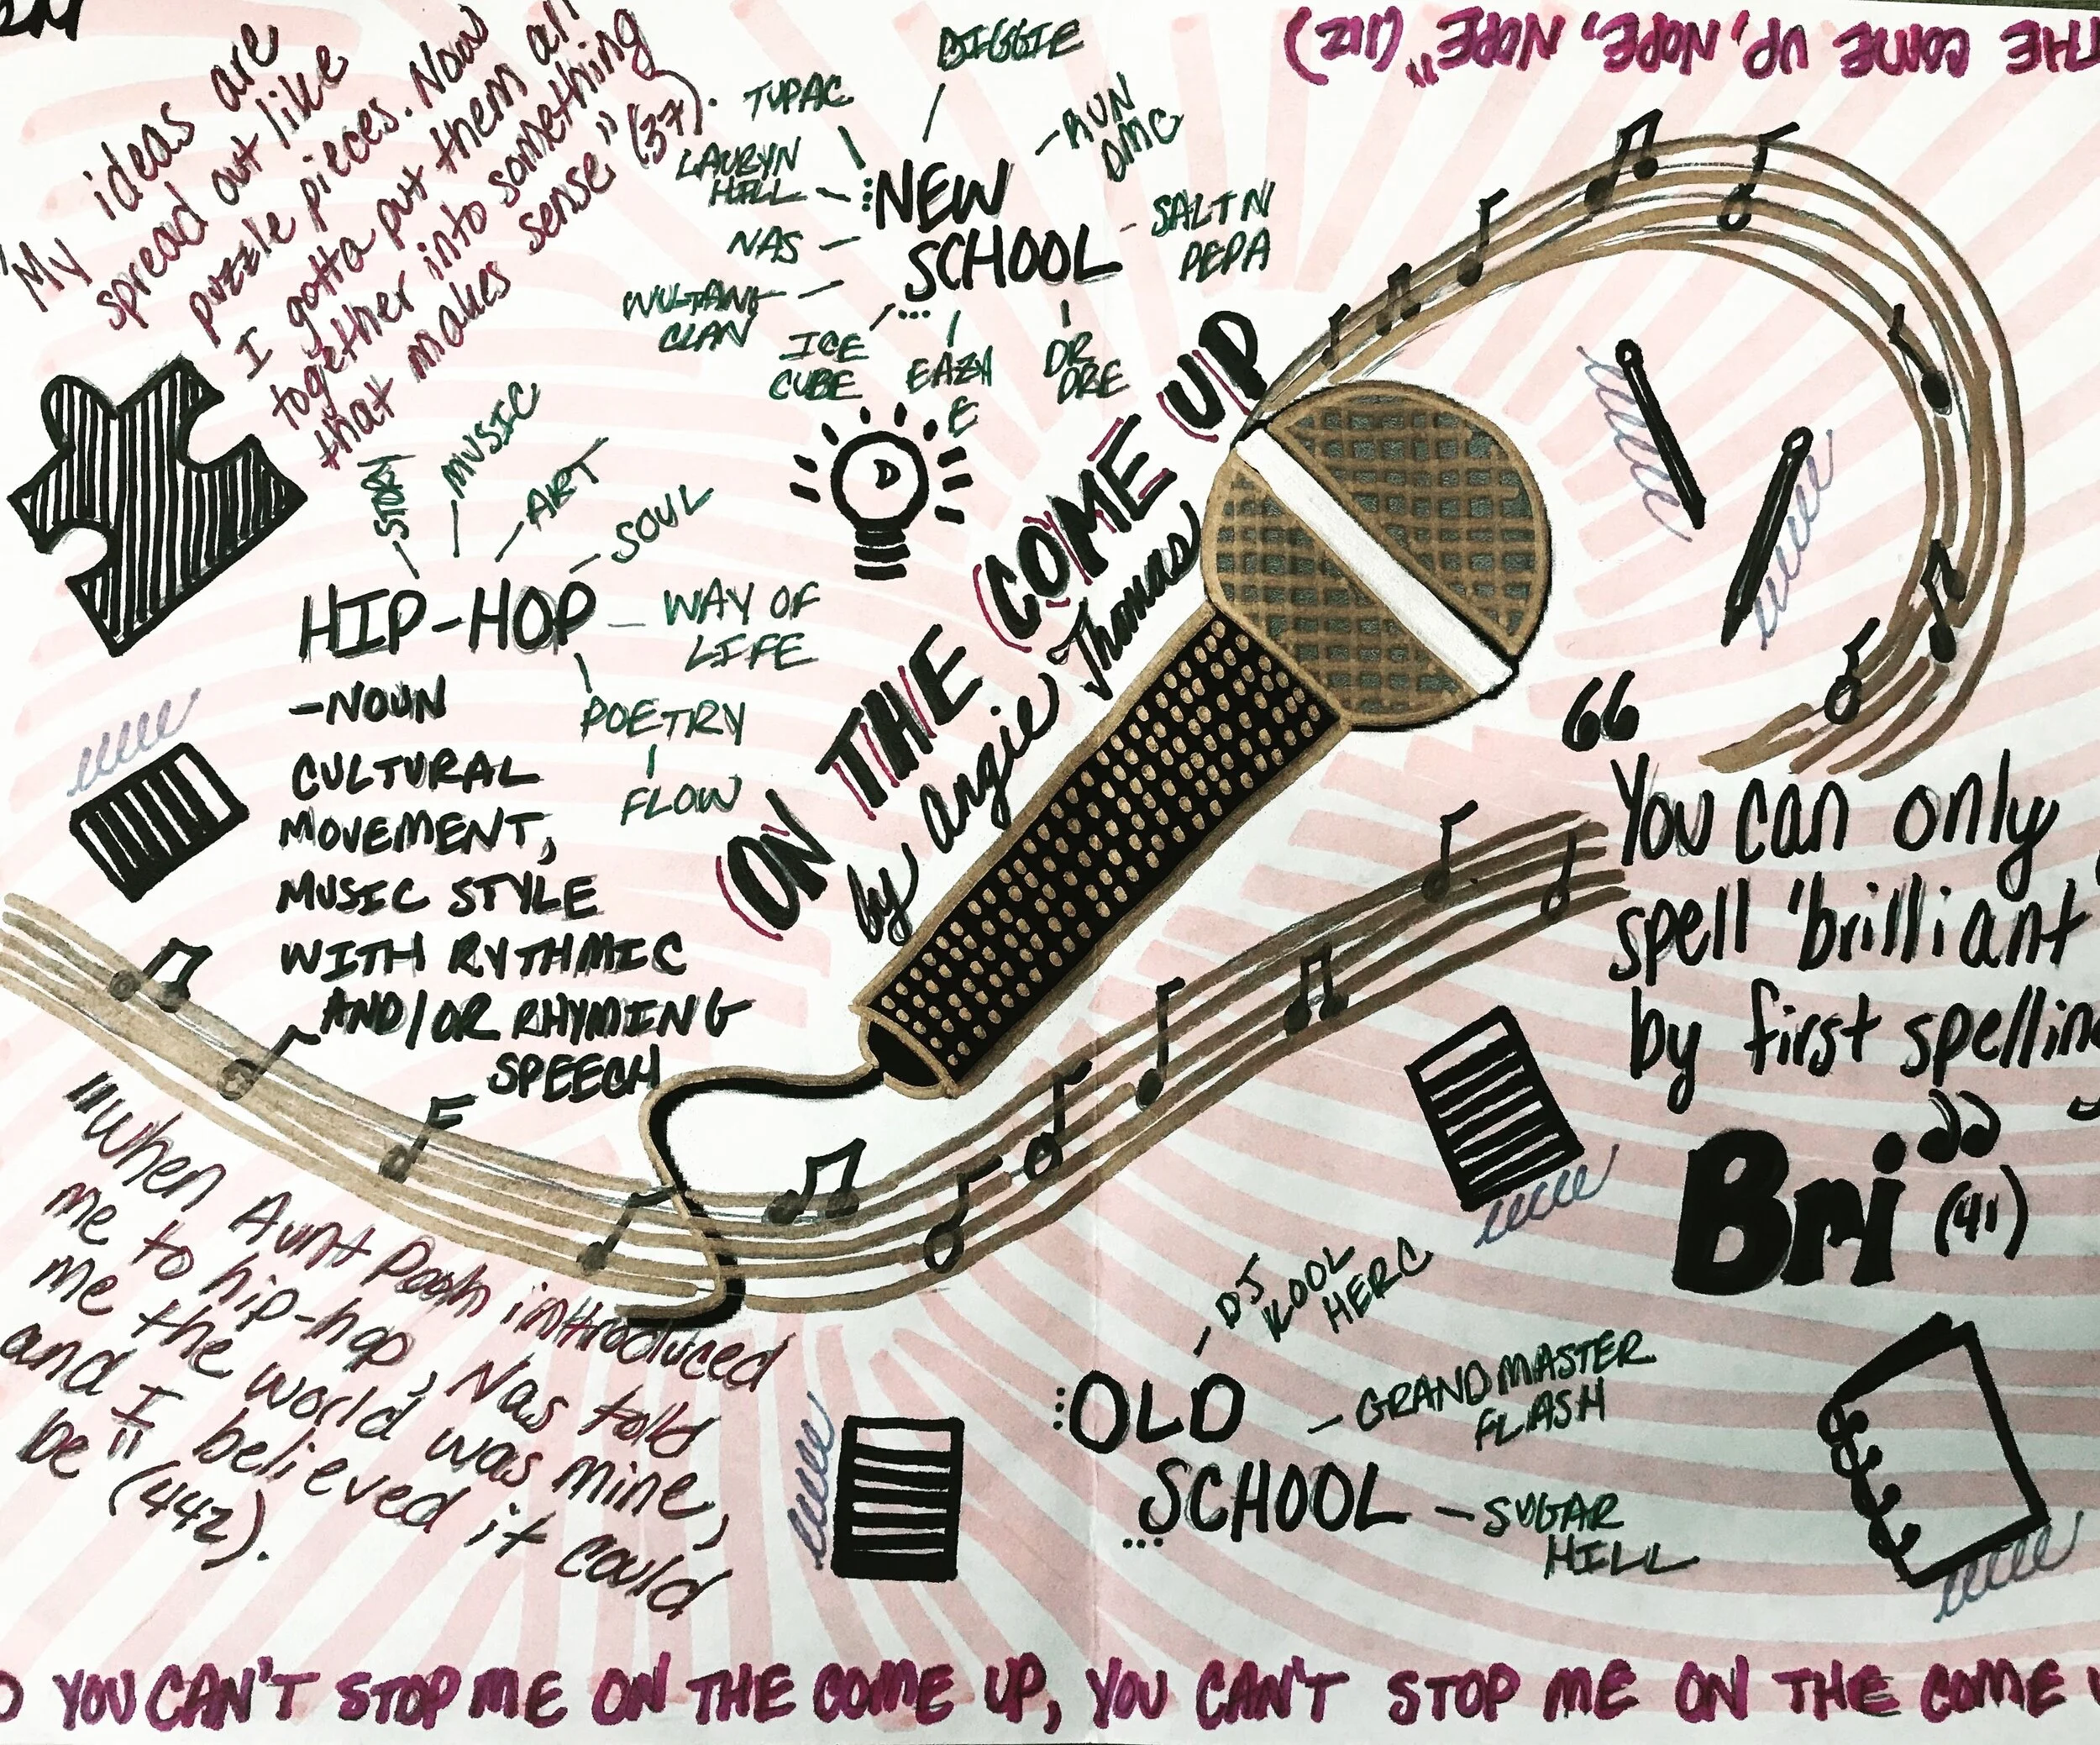 "My ideas are
spread out like
puzzle pieces. Now
I gotta put them all
together into something
that makes sense" (37).
BIGGIE
TUPAC
RUN
DMC
LAURYN
HILL
NEW
SCHOOL
SALT N
PEPA
NAS
WU-TANG
CLAN
ICE
CUBE
EAZY
E
DR
DRE
THE COME UP, NOPE, NOPE" (212)
STORY
MUSIC
ART
SOUL
HIP-HOP
WAY OF
LIFE
POETRY
FLOW
-NOUN
CULTURAL
MOVEMENT,
MUSIC STYLE
WITH RYTHMIC
AND/OR RHYMING
SPEECH
ON THE COME UP
by Angie Thomas
"You can only
spell 'brilliant
by first spellin
Bri" (41)
"When Aunt Pooh introduced
me to hip-hop, Nas told
me the world was mine,
and I believed it could
be" (442).
DJ
KOOL
HERC
OLD
SCHOOL
GRANDMASTER
FLASH
SUGAR
HILL
YOU CAN'T STOP ME ON THE COME UP, YOU CAN'T STOP ME ON THE COME